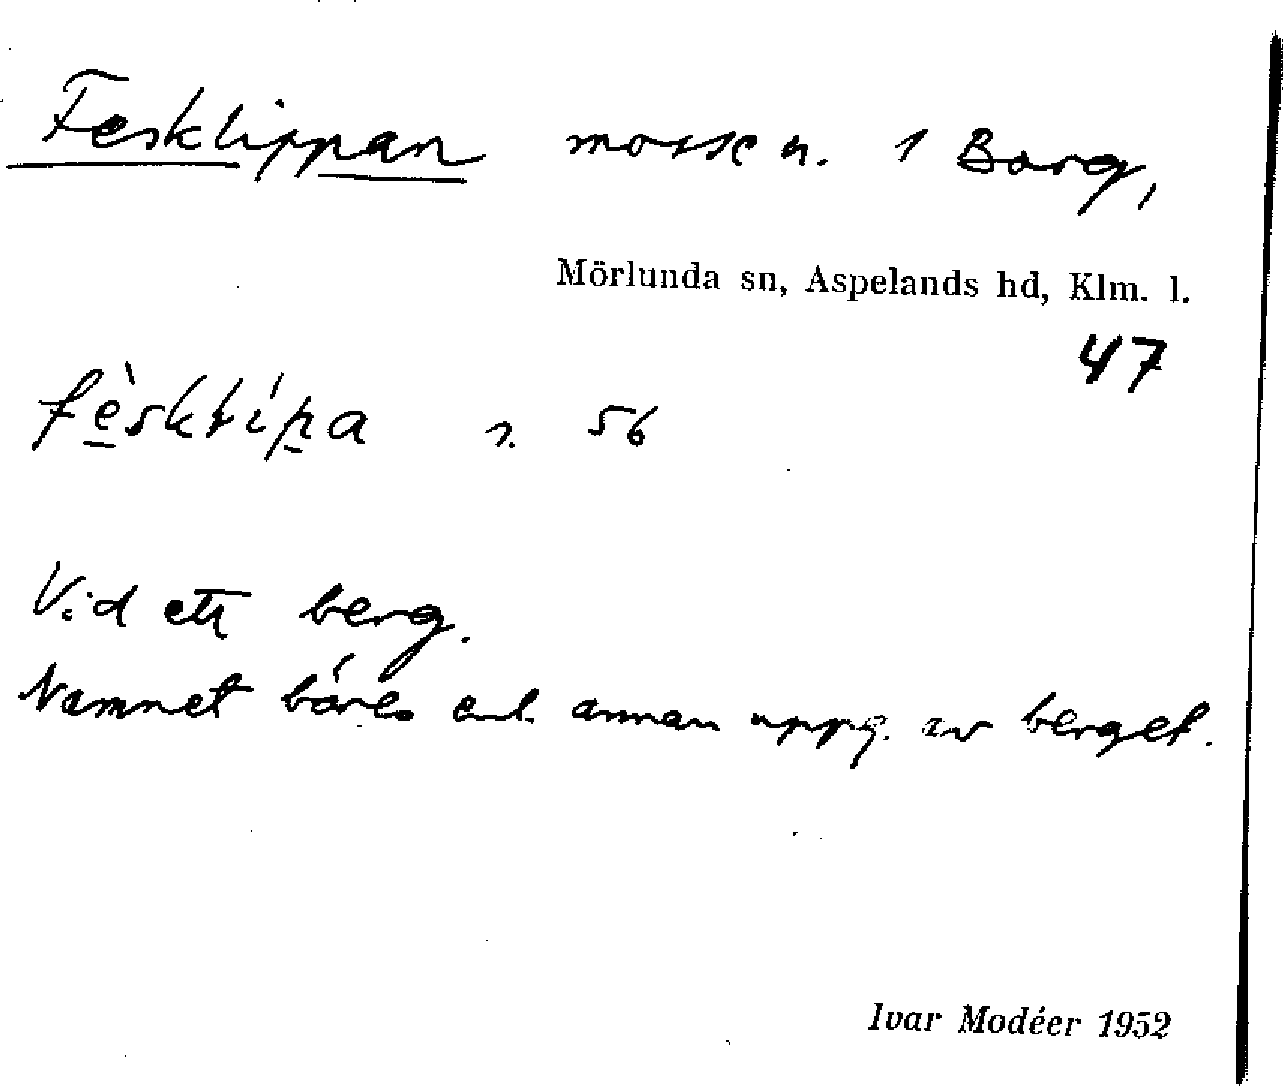 Fesklippan mosse n. 1 Borg,
Mörlunda sn, Aspelands hd, Klm. l.
47
fè̠sklíp̠a n. 56
Vid ett berg.
Namnet bäres enl. annan uppg. av berget.
Ivar Modéer 1952